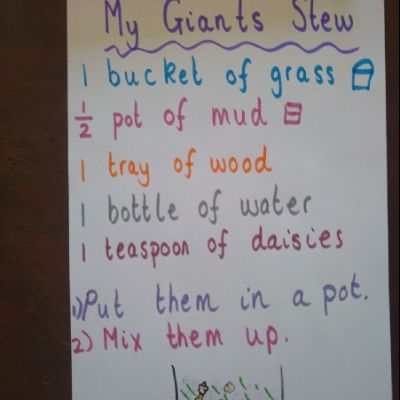 My Giants Stew
1 bucket of grass
½ pot of mud
1 tray of wood
1 bottle of water
1 teaspoon of daisies
1) Put them in a pot.
2) Mix them up.